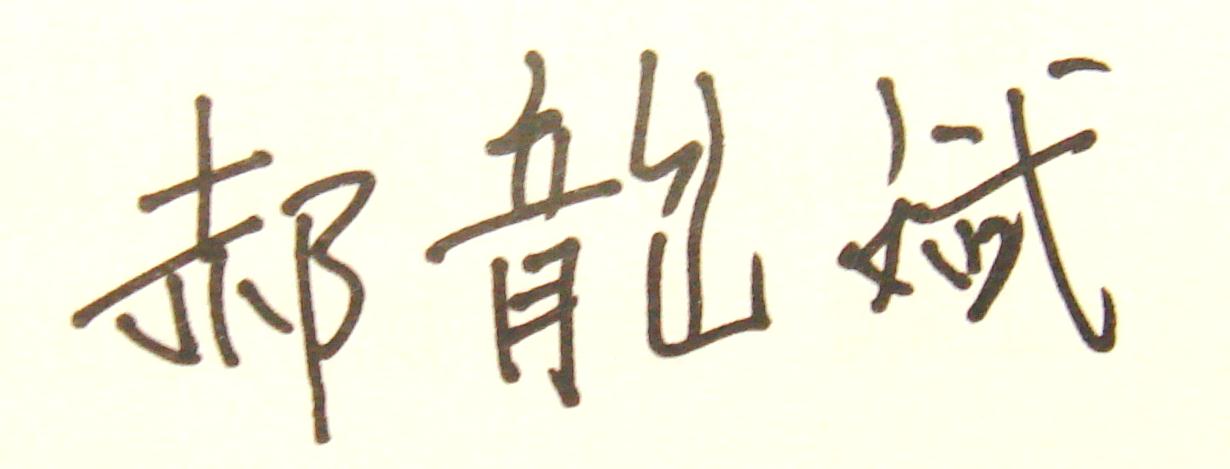 郝龍斌